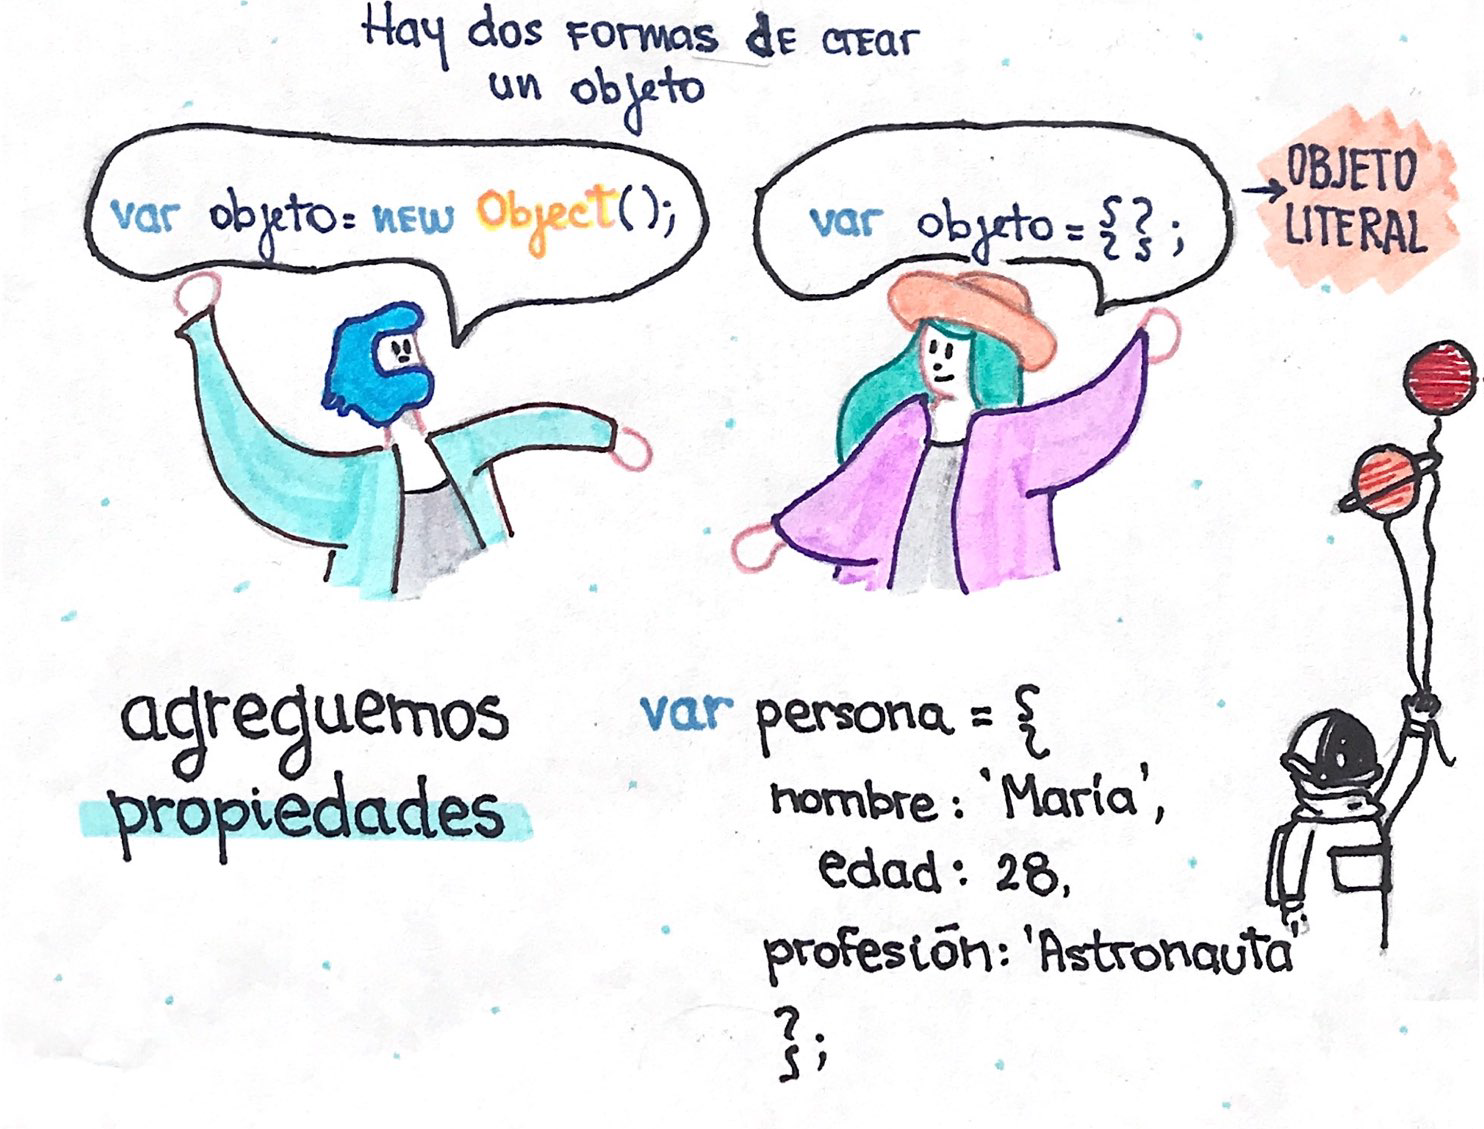 Hay dos formas de crear
un objeto
var objeto = new Object();
var objeto = {};
→ OBJETO
LITERAL
agreguemos
propiedades
var persona = {
nombre: 'María',
edad: 28,
profesión: 'Astronauta'
};